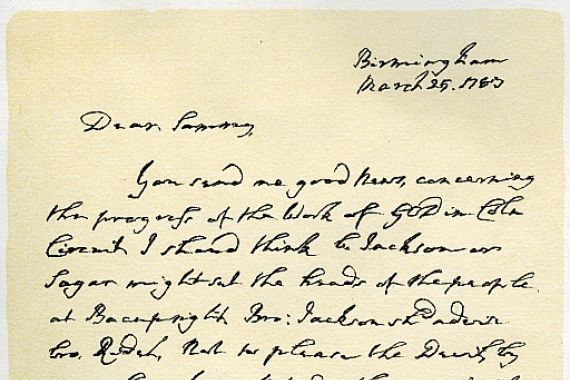 Birmingham
March 25. 1787
Dear Sammy,
You send me good News, concerning
the progress of the Work of GOD in Coln
Circuit I should think Br Jackson or
Sagar might set the heads of the people
at Bacup right Bro: Jackson shd advise
bro. Ridel, Not to please the Devil, by